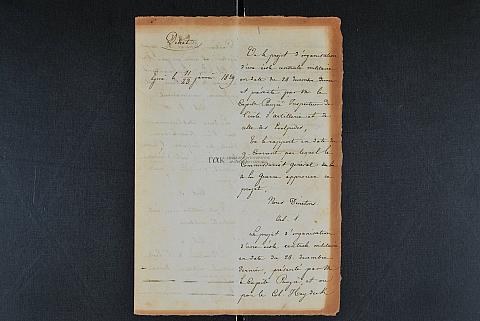 Décret
Egine le 11/23 janvier 1829
Vu le projet d'organisation
d'une école centrale militaire
en date du 28 décembre dernier
et présenté par Mr le
Capite Pauzié Inspecteur de
l'école d'Artillerie et de
celle des Evelpides,
Vu le rapport en date du
9 Courant par lequel le
Commissariat général de la
à la Guerre approuve ce
projet.
Nous Décrétons
Art. 1
Le projet d'organisation
d'une école centrale militaire
en date du 28 décembre
dernier, présenté par Mr
le Capite Pauzié et vu
par le Col. Heydeck
ΓΑΚ